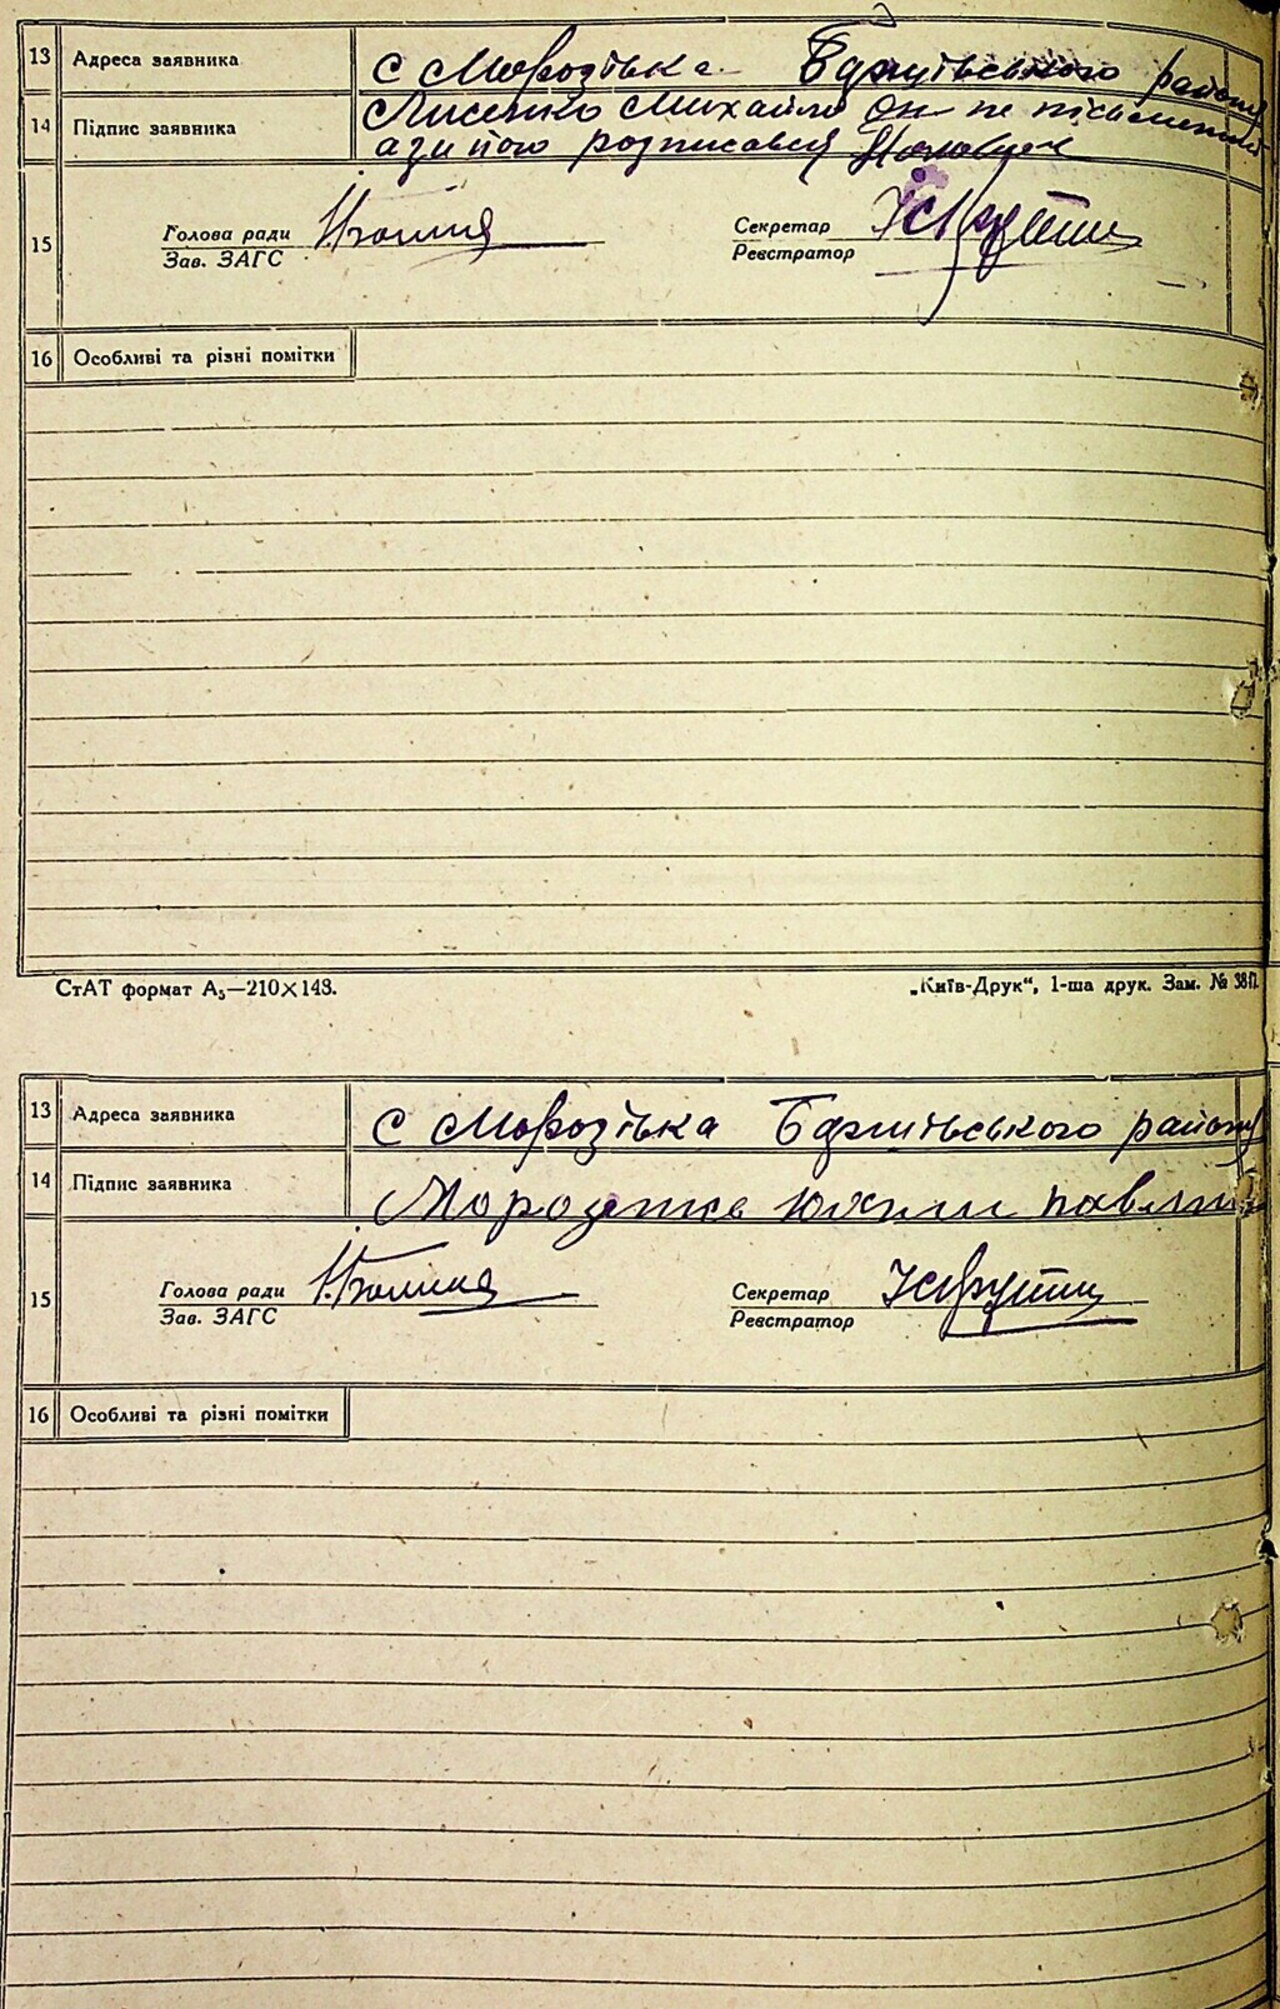 13 Адреса заявника с Морозівка Баришівського району
14 Підпис заявника Лисенко Михайло он не письменний
а за його розписався
15 Голова ради Секретар
Зав. ЗАГС Реєстратор
16 Особливі та різні помітки
СтАТ формат А₅—210×143. „Київ-Друк“, 1-ша друк. Зам. № 38
13 Адреса заявника с Морозівка Баришівського району
14 Підпис заявника Юхим Павлик
15 Голова ради Секретар
Зав. ЗАГС Реєстратор
16 Особливі та різні помітки